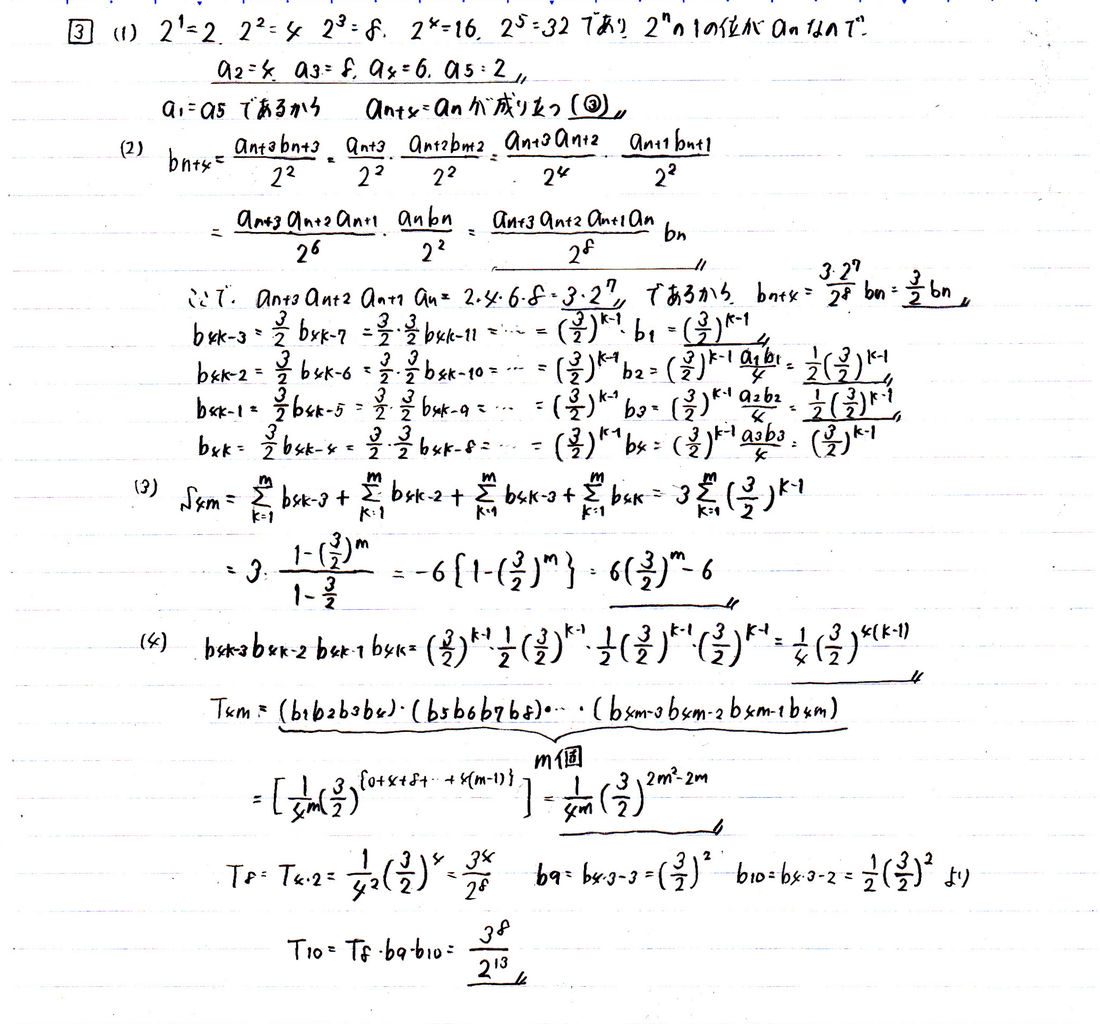 3 (1) 2^1=2. 2^2=4 2^3=8. 2^4=16. 2^5=32 であり 2^nの1の位が anなので.
a2=4. a3=8. a4=6. a5=2
a1=a5 であるから an+4=an が成り立つ (③)
(2) bn+4= an+3bn+3/2^2 = an+3/2^2 · an+2bn+2/2^2 = an+3 an+2/2^4 · an+1bn+1/2^2
= an+3 an+2 an+1/2^6 · anbn/2^2 = an+3 an+2 an+1 an/2^8 bn
ここで. an+3 an+2 an+1 an= 2·4·6·8=3·2^7 であるから. bn+4= 3·2^7/2^8 bn= 3/2 bn
b4k-3= 3/2 b4k-7 = 3/2·3/2 b4k-11 = ··· = (3/2)^k-1 · b1 = (3/2)^k-1
b4k-2= 3/2 b4k-6 = 3/2·3/2 b4k-10= ··· = (3/2)^k-1 b2= (3/2)^k-1 a1b1/4 = 1/2(3/2)^k-1
b4k-1= 3/2 b4k-5 = 3/2·3/2 b4k-9 = ··· = (3/2)^k-1 b3= (3/2)^k-1 a2b2/4 = 1/2(3/2)^k-1
b4k= 3/2 b4k-4 = 3/2·3/2 b4k-8= ··· = (3/2)^k-1 b4= (3/2)^k-1 a3b3/4 = (3/2)^k-1
(3) S4m = mΣk=1 b4k-3 + mΣk=1 b4k-2 + mΣk=1 b4k-3 + mΣk=1 b4k = 3 mΣk=1 (3/2)^k-1
= 3· 1-(3/2)^m/1-3/2 = -6{1-(3/2)^m} = 6(3/2)^m-6
(4) b4k-3b4k-2 b4k-1 b4k= (3/2)^k-1·1/2(3/2)^k-1·1/2(3/2)^k-1·(3/2)^k-1 = 1/4(3/2)^4(k-1)
T4m = (b1b2b3b4)·(b5b6b7b8)···· (b4m-3b4m-2b4m-1b4m)
m個
= [1/4^m(3/2)^{0+4+8+···+4(m-1)}] = 1/4^m(3/2)^2m²-2m
T8= T4·2= 1/4^2(3/2)^4= 3^4/2^8 b9= b4·3-3=(3/2)^2 b10=b4·3-2= 1/2(3/2)^2 より
T10= T8·b9·b10= 3^8/2^13